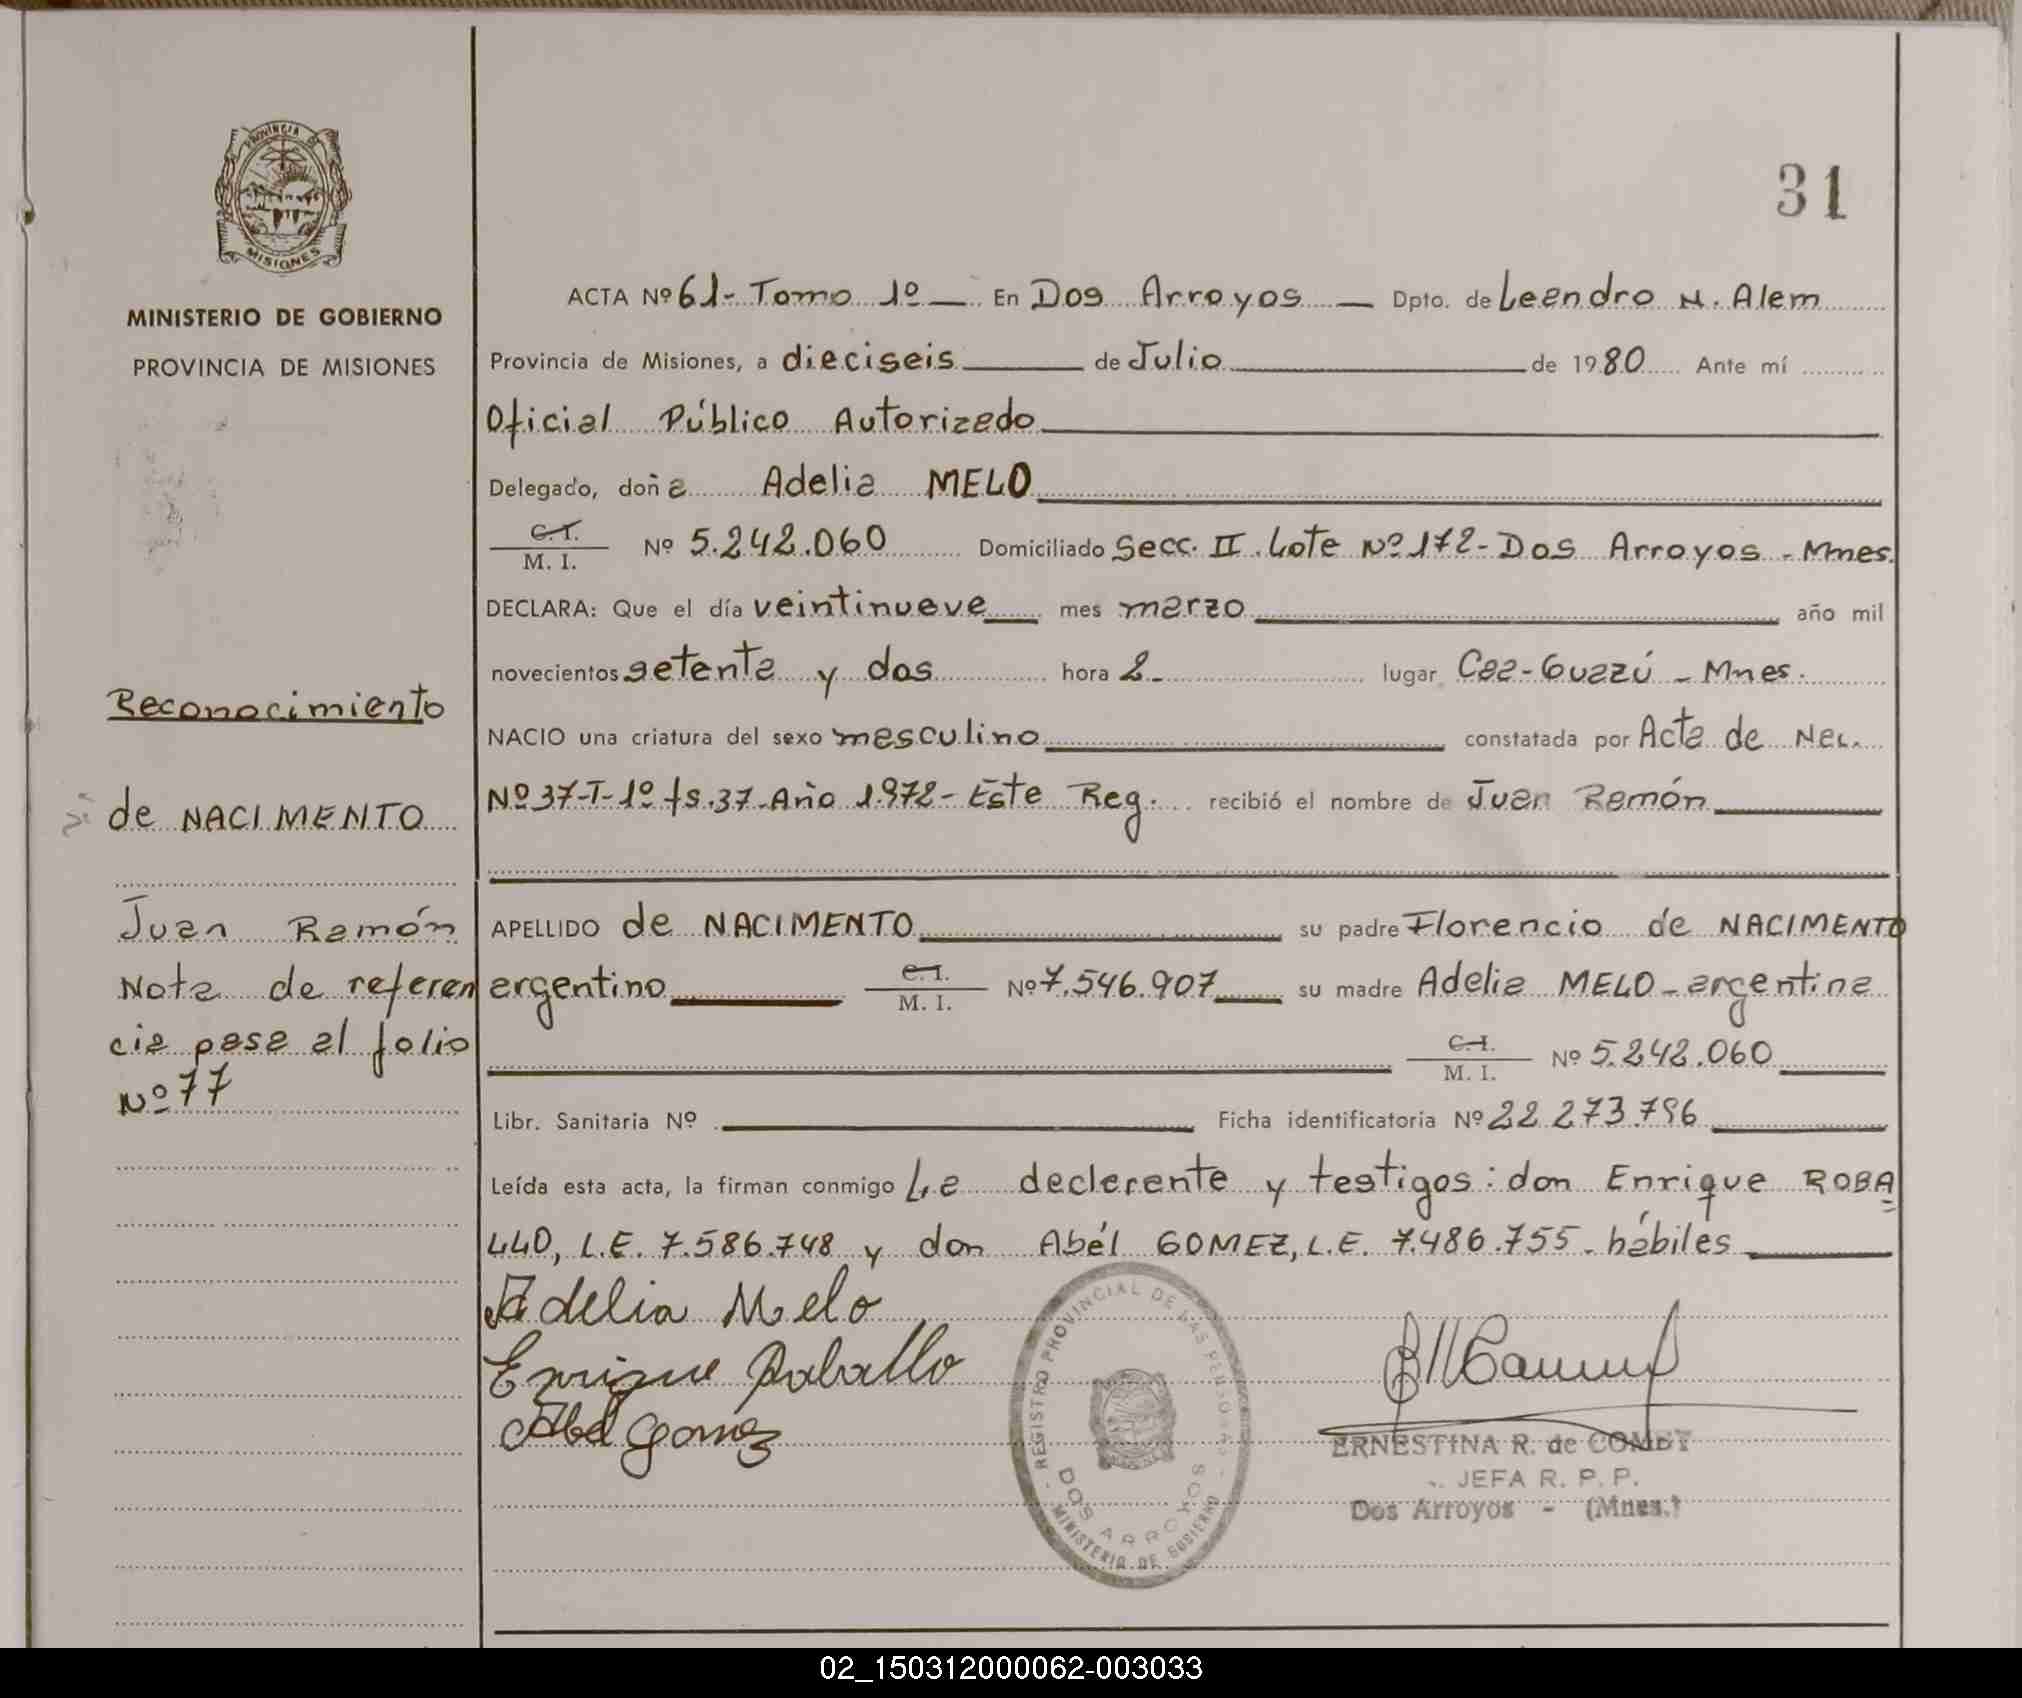 31
PROVINCIA DE
MISIONES
MINISTERIO DE GOBIERNO
PROVINCIA DE MISIONES
ACTA Nº 61- Tomo 1º En Dos Arroyos Dpto. de Leandro N. Alem
Provincia de Misiones, a dieciseis de Julio de 1980 Ante mí
Oficial Público Autorizado
Delegado, doña Adelia MELO
C.I.
M. I. Nº 5.242.060 Domiciliado Secc. II. Lote Nº 172- Dos Arroyos - Mnes.
DECLARA: Que el día veintinueve mes marzo año mil
novecientos setenta y dos hora 2- lugar Caa-Guazú - Mnes.
NACIO una criatura del sexo masculino constatada por Acta de Nac.
Nº 37-T-1º fs.37-Año 1.972- Este Reg. recibió el nombre de Juan Ramón
APELLIDO de NACIMENTO su padre Florencio de NACIMENTO
argentino C.I. M. I. Nº 7.546.907 su madre Adelia MELO - argentina
C.I.
M. I. Nº 5.242.060
Libr. Sanitaria Nº Ficha identificatoria Nº 22.273.796
Leída esta acta, la firman conmigo La declarente y testigos: don Enrique ROBA
LLO, L.E. 7.586.748 y don Abél GOMEZ, L.E. 7.486.755. hábiles
Reconocimiento
de NACIMENTO
Juan Ramón
Nota de referen
cia pasa al folio
Nº 77
Adelia Melo
Enrique Raballo
Abel Gomez
REGISTRO PROVINCIAL DE LAS PERSONAS
DOS ARROYOS
MINISTERIO DE GOBIERNO
ERNESTINA R. de COMBY
JEFA R. P. P.
Dos Arroyos - (Mnes.)
02_150312000062-003033